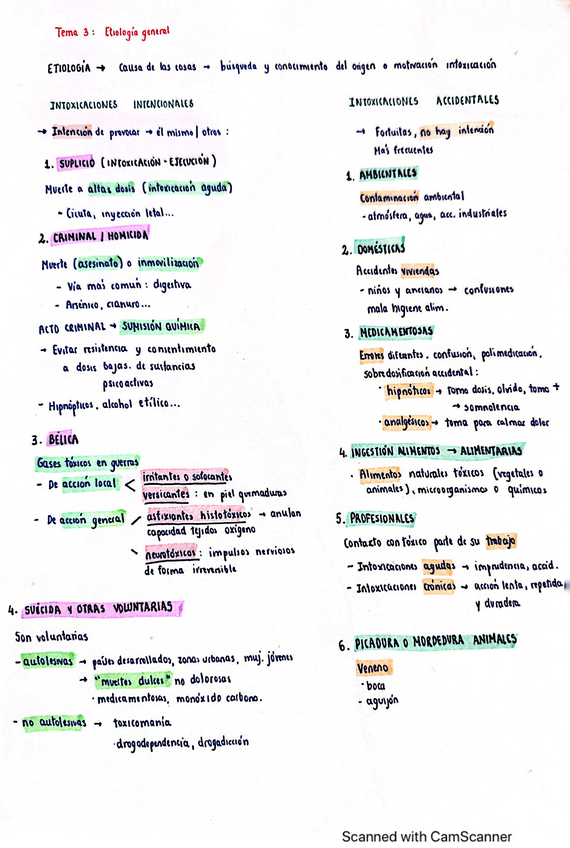 Tema 3: Etiología general
ETIOLOGÍA → Causa de las cosas → búsqueda y conocimiento del origen o motivación intoxicación
INTOXICACIONES INTENCIONALES
→ Intención de provocar → él mismo / otros :
1. SUPLICIO (INTOXICACIÓN - EJECUCIÓN)
Muerte a altas dosis (intoxicación aguda)
- Cicuta, inyección letal...
2. CRIMINAL / HOMICIDA
Muerte (asesinato) o inmovilización
- Vía más común : digestiva
- Arsénico, cianuro...
ACTO CRIMINAL → SUMISIÓN QUÍMICA
→ Evitar resistencia y consentimiento
a dosis bajas. de sustancias
psicoactivas
- Hipnópticos, alcohol etílico...
3. BÉLICA
Gases tóxicos en guerras
- De acción local < irritantes o sofocantes
versicantes : en piel quemaduras
- De acción general / asfixiantes histotóxicos → anulan
capacidad tejidos oxígeno
\ neurotóxicos : impulsos nerviosos
de forma irreversible
4. SUICIDA Y OTRAS VOLUNTARIAS
Son voluntarias
- autolesivas → países desarrollados, zonas urbanas, muj. jóvenes
→ "muertes dulces" no dolorosas
· medicamentosas, monóxido carbono.
- no autolesivas → toxicomanía
· drogodependencia, drogadicción
INTOXICACIONES ACCIDENTALES
→ Fortuitas, no hay intención
Más frecuentes
1. AMBIENTALES
Contaminación ambiental
- atmósfera, agua, acc. industriales
2. DOMÉSTICAS
Accidentes viviendas
- niños y ancianos → confusiones
mala higiene alim.
3. MEDICAMENTOSAS
Errores difcantes. confusión, polimedicación,
sobredosificación accidental :
· hipnóticos → toma dosis, olvido, toma +
→ somnolencia
· analgésicos → toma para calmar dolor
4. INGESTIÓN ALIMENTOS → ALIMENTARIAS
· Alimentos naturales tóxicos (vegetales o
animales), microorganismos o químicos
5. PROFESIONALES
Contacto con tóxico parte de su trabajo
- Intoxicaciones agudas → imprudencia, accid.
- Intoxicaciones crónicas → acción lenta, repetida,
y duradera
6. PICADURA O MORDEDURA ANIMALES
Veneno
· boca
- aguijón
Scanned with CamScanner